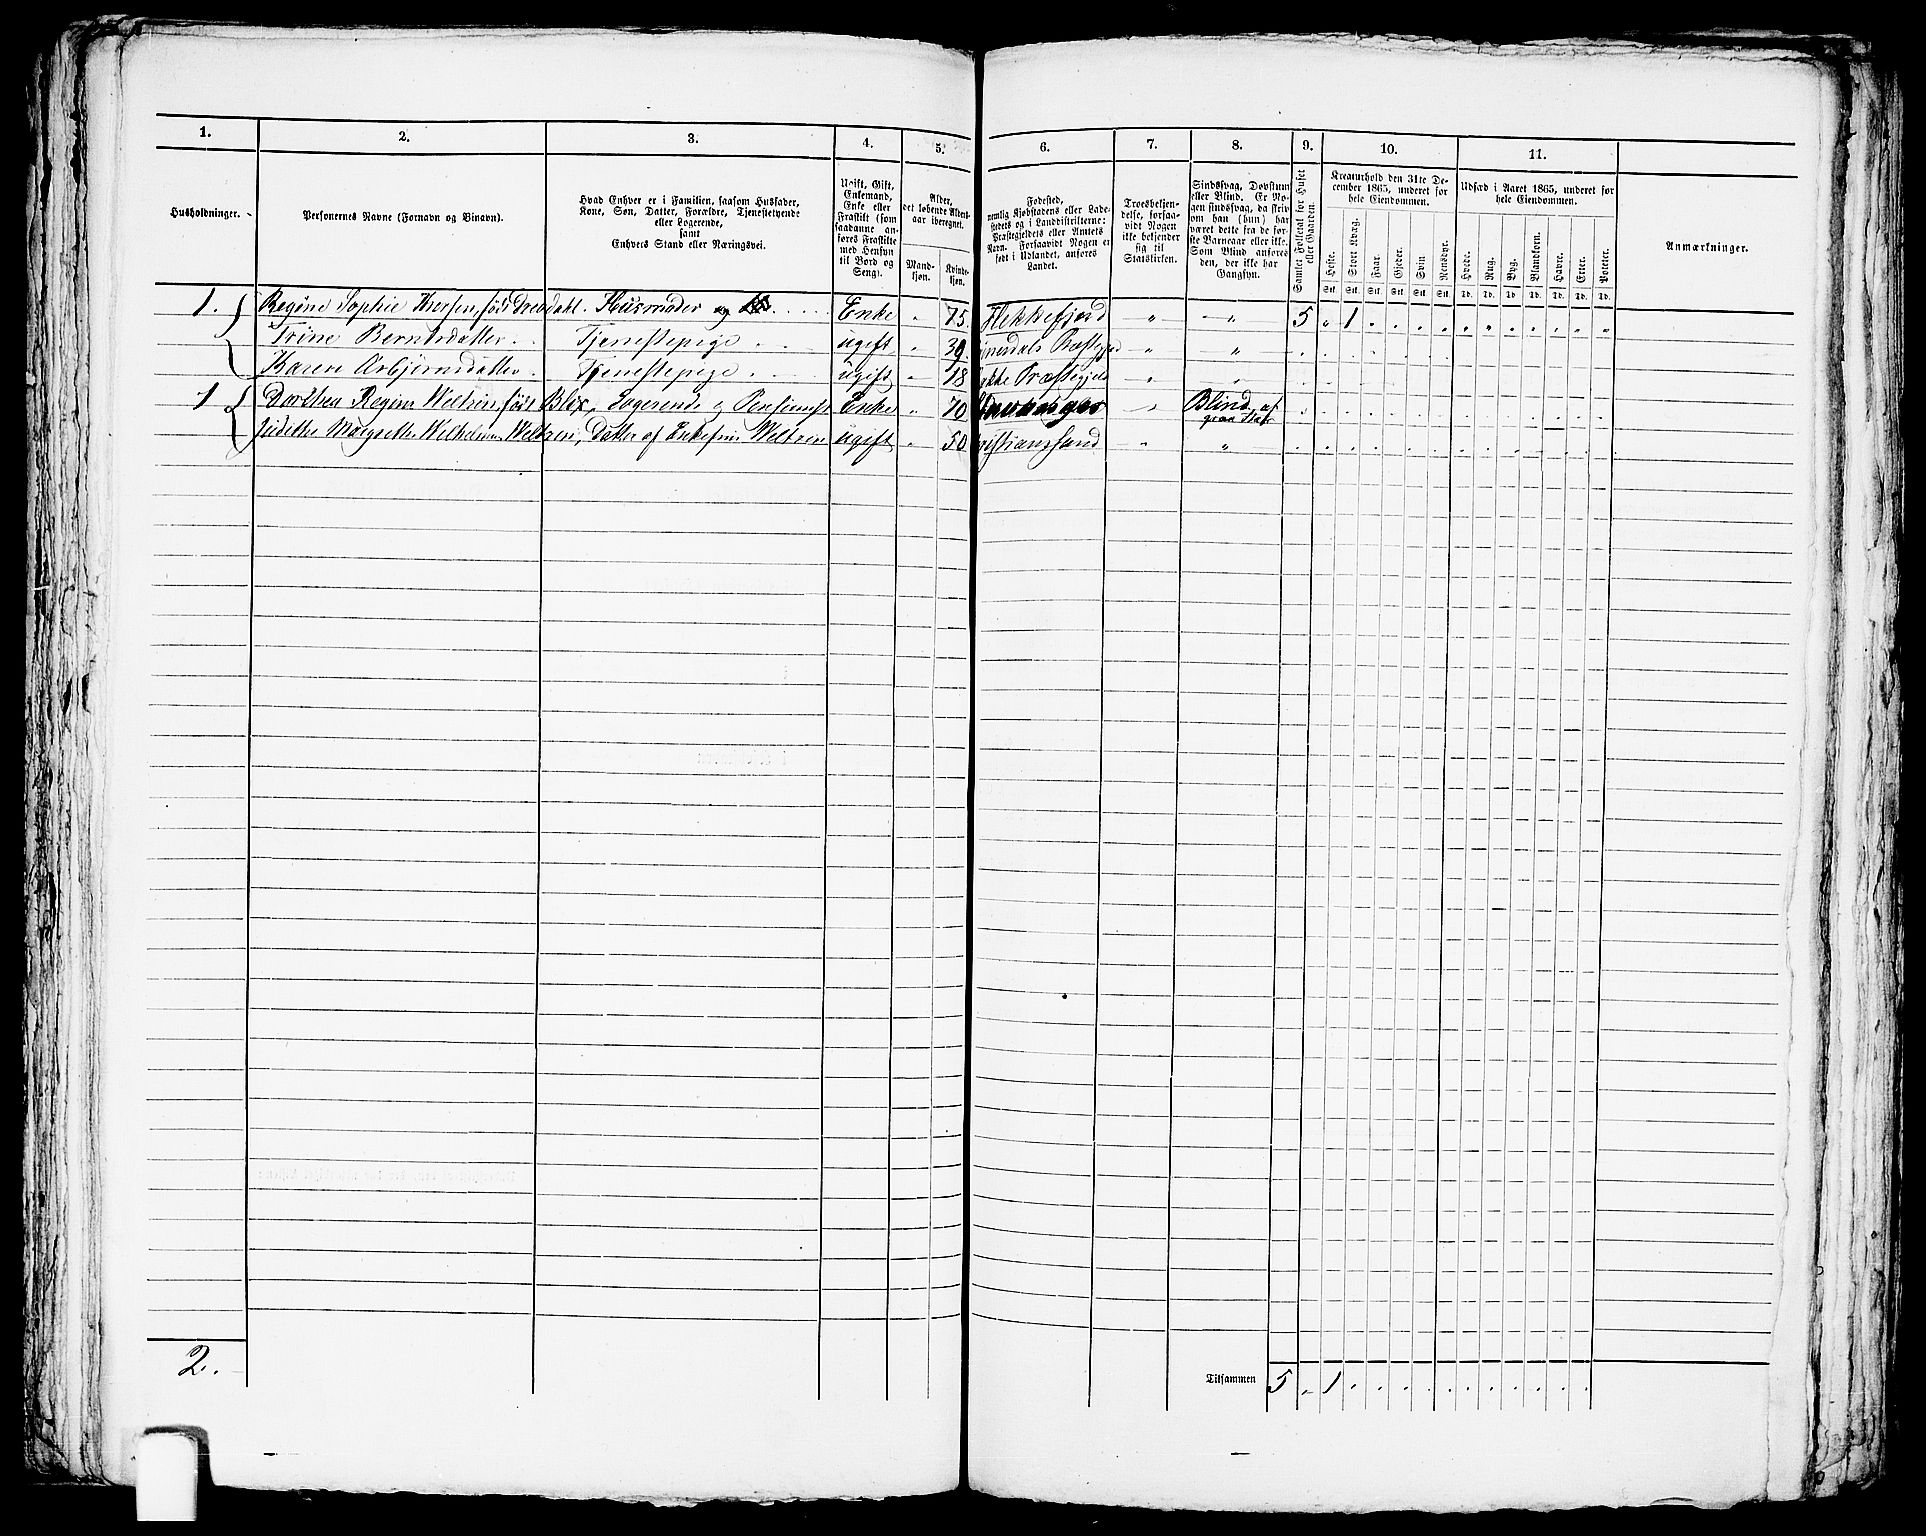 1. 2. 3. 4. 5. 6. 7. 8. 9. 10. 11.
Husholdninger.
Personernes Navne (Fornavn og Binavn).
Hvad Enhver er i Familien, saasom Husfader,
Kone, Søn, Datter, Forældre, Tjenestetyende
eller Logerende,
samt
Enhvers Stand eller Næringsvei.
Ugift, Gift,
Enkemand,
Enke eller
Fraskilt (som
saadanne an-
føres Fraskilte
med Hensyn
til Bord og
Seng).
Alder,
det løbende Alders-
aar iberegnet.
Mand-
kjøn.
Kvinde-
kjøn.
Fødested,
nemlig Kjøbstadens eller Lade-
stedets og i Landdistrikterne:
Præstegjeldets eller Amtets
Navn. Forsaavidt Nogen er
født i Udlandet, anføres
Landet.
Troesbekjen-
delse, forsaa-
vidt Nogen
ikke bekjender
sig til
Statskirken.
Sindssvag, Døvstum
eller Blind. Er No-
gen sindssvag, da skriv
om han (hun) har
været dette fra de før-
ste Barneaar eller ikke.
Som Blind anføres
den, der ikke har
Gangsyn.
Samlet Folketal for Huset
eller Gaarden.
Kreaturhold den 31te De-
cember 1865, underet for
hele Eiendommen.
Heste. Stort Kvæg. Faar. Gjeder. Svin. Rensdyr.
Stk. Stk. Stk. Stk. Stk. Stk.
Udsæd i Aaret 1865, underet for
hele Eiendommen.
Hvede. Rug. Byg. Blandkorn. Havre. Erter. Poteter.
Td. Td. Td. Td. Td. Td. Td.
Anmærkninger.
1. Regine Sophie Iversen, født Husmoder og Enke " 75. Flekkefjord " " 5 " 1
Trine Berntsdatter Tjenestepige ugift " 39 " "
Karen Asbjørnsdatter Tjenestepige ugift " 18 Præstegjeld " "
1 Dorthea Regine Weltzin, født Blix, Logerende og Enke " 70 " Blind af
Judithe Margrethe Wilhelmine Weltzien, Datter af Enkefru Weltzien ugift " 50 " "
2.
Tilsammen 5 " 1